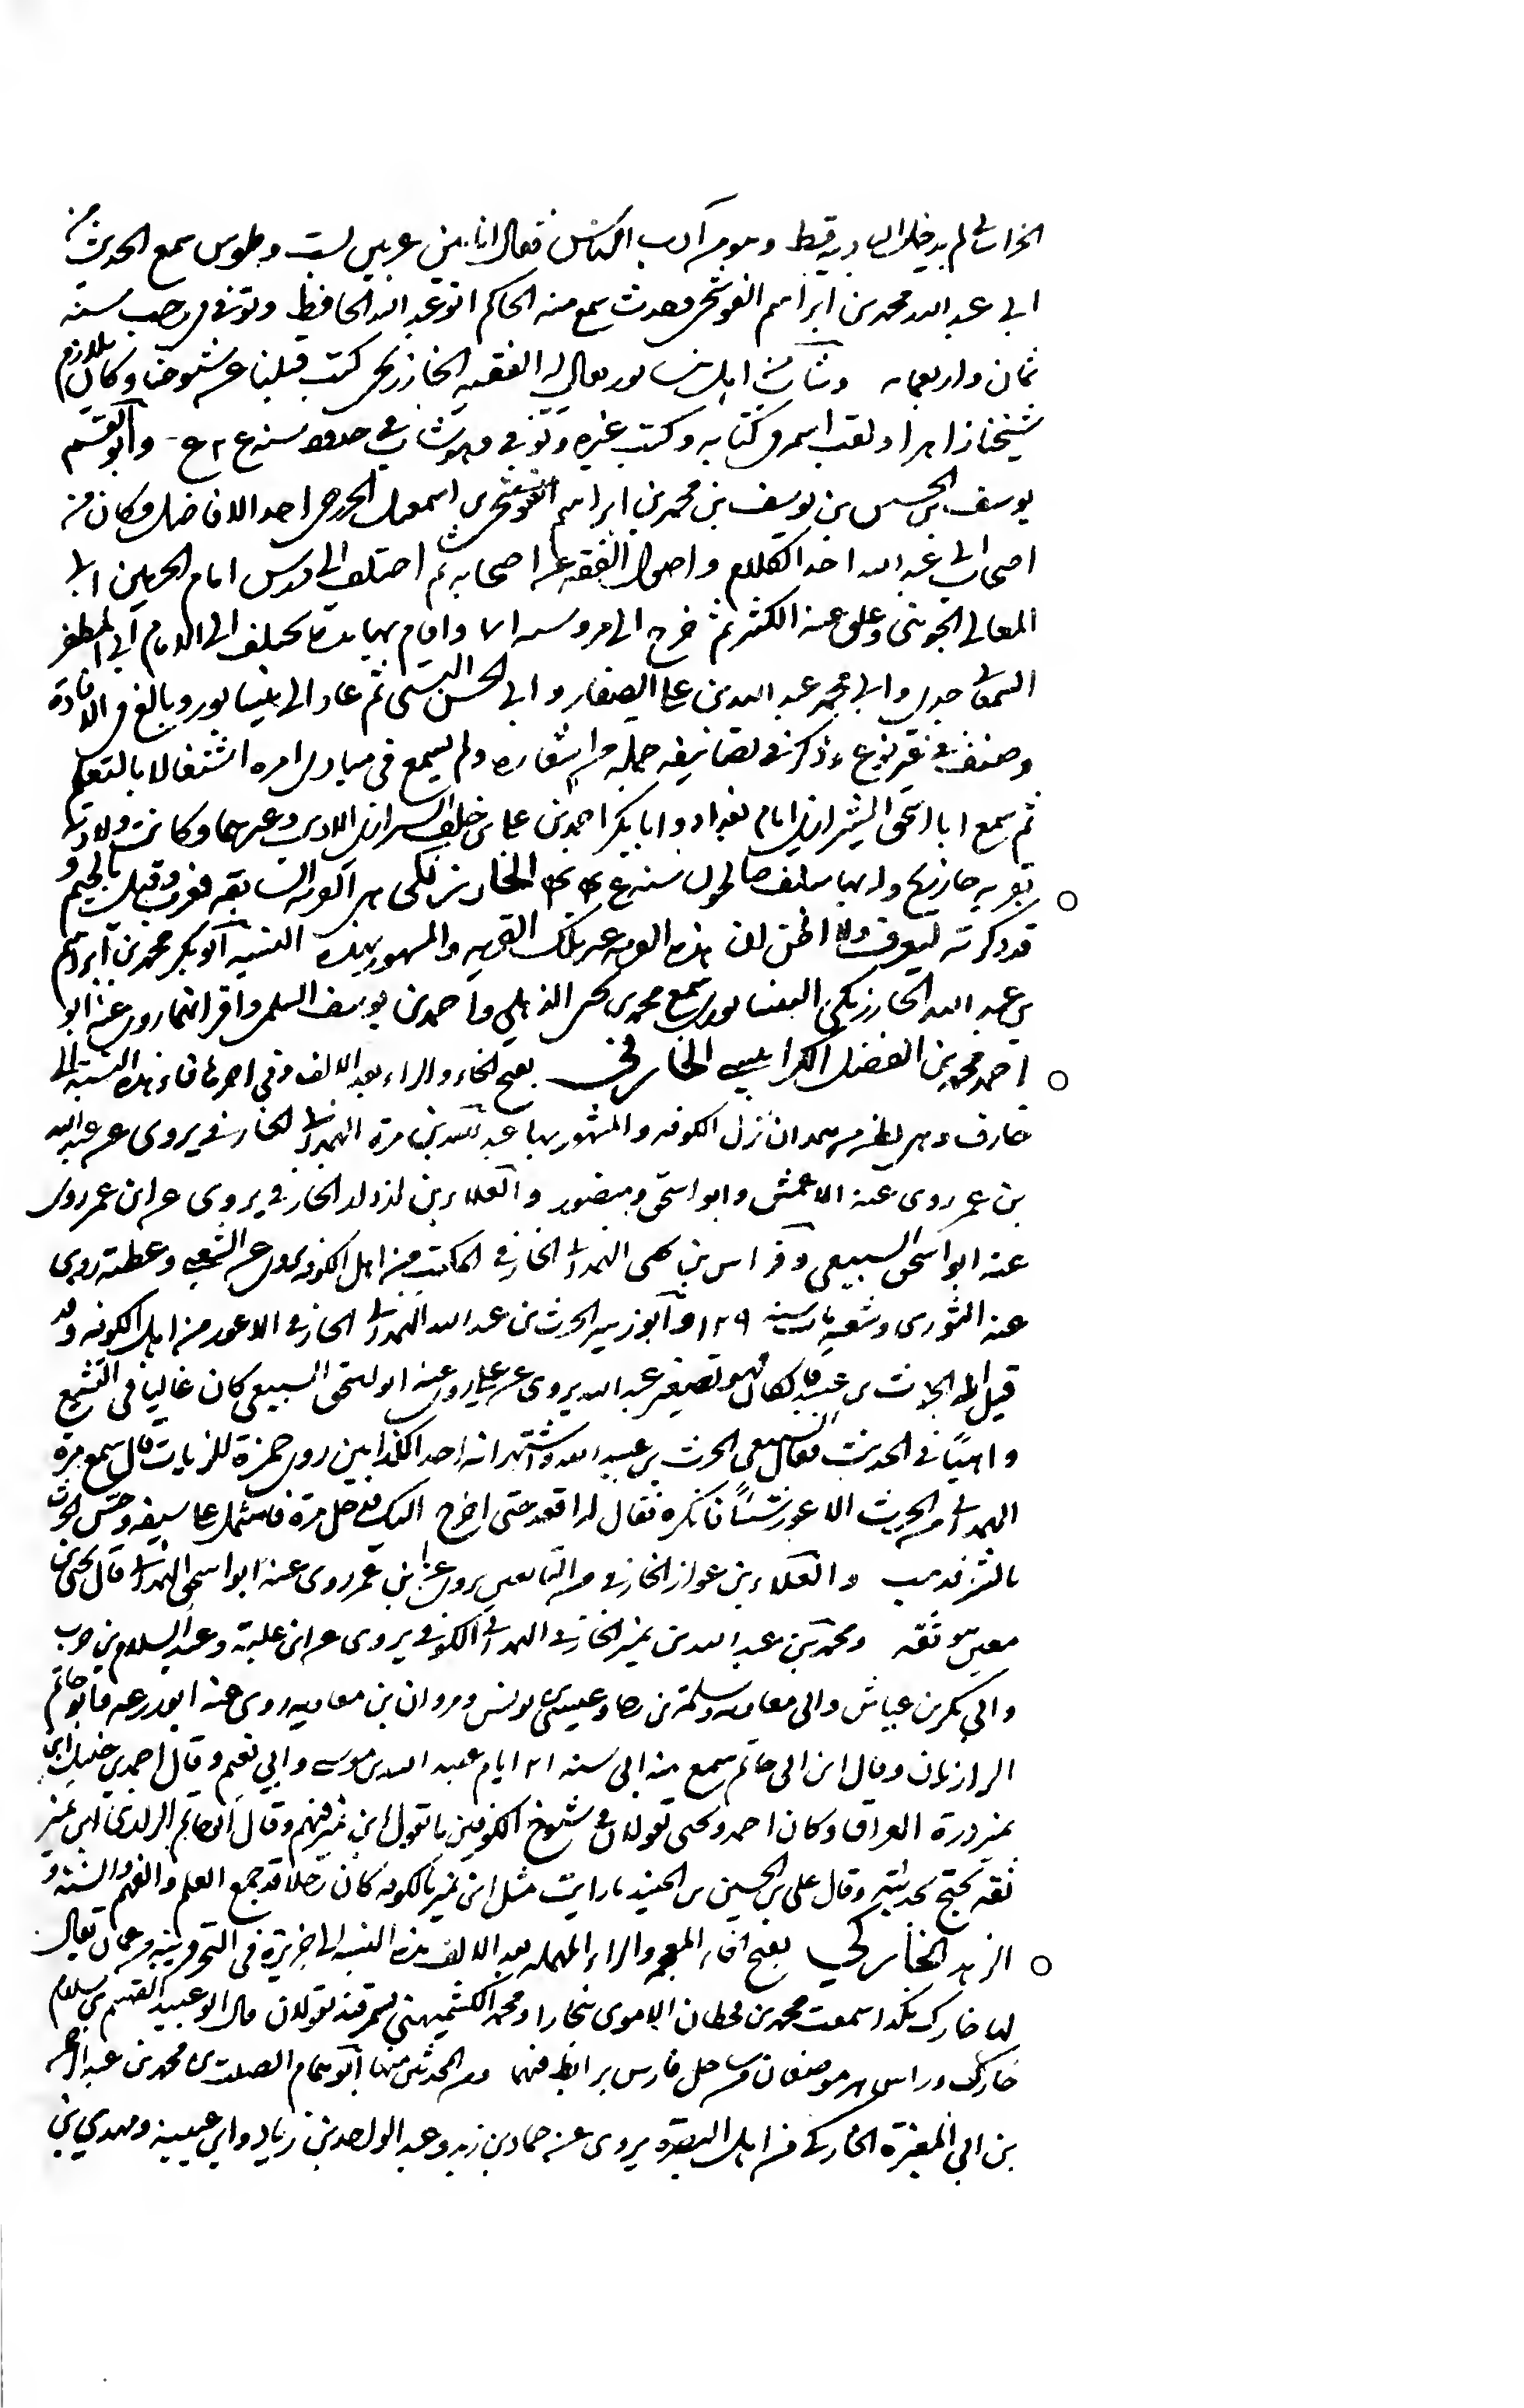 الخراساني لم يدخل البادية قط وهو من آدب الناس فقال انا بين عربيين بست وطوس سمع الحديث من
ابي عبد الله محمد بن ابراهيم الفوشنجي وحدث سمع منه الحاكم ابو عبد الله الحافظ وتوفي في رجب سنة
ثمان واربعمائه وشاب من اهل نيسابور يقال له الفقيه الخازرنجي كتب قبلنا عن شيوخنا وكان يلازم
شيخنا زاهرا ولقب اسمه في كتابه وكتب غيره وتوفي وهو شاب في حدود سنه وابو القسم
يوسف بن الحسن بن يوسف بن محمد بن ابراهيم بن اسمعيل الخرجردي احد الافاضل وكان من
اصحاب ابي عبد الله اخذ الكلام واصول الفقه عن اصحابه ثم اختلف الى درس امام الحرمين ابي
المعالي الجويني وعلق عنه الكثير ثم خرج الى مرو واقام بها مدة يختلف الى الامام ابي المظفر
السمعاني جدي وابي محمد عبد الله بن علي الصفار وابي الحسن البستي ثم عاد الى نيسابور وبالغ في الافادة
وصنف في غير نوع وذكر في تصانيفه جملة من اشعاره ولم يسمع في مبادي امره اشتغالا بالتعلم
ثم سمع ابا اسحق الشيرازي امام بغداد وابا بكر احمد بن علي بن خلف الشيرازي الاديب وغيرهما وكانت ولادته
بقريه خازرنج ولد بها سلف صالحون سنه ع الخارزنكي هي الكورة السابقه فعرب وقيل بالجيم و
قد ذكرته ليعرف ولا اظن ان هذه القريه غير تلك القريه والمشهور بهذه النسبه ابو بكر محمد بن ابراهيم
بن عبد الله الخارزنكي النيسابوري سمع محمد بن يحيى الذهلي واحمد بن يوسف السلمي واقرانهما روى عنه ابو
احمد محمد بن الفضل الكرابيسي الخارفي بفتح الخاء والراء بعد الالف وفي اخرها فاء هذه النسبة الى
خارف وهي بطن من همدان نزل الكوفه والمشهور بها عبد الله بن مرة الهمداني الخارفي يروى عن عبد الله
بن عمر روى عنه الاعمش وابو اسحق ومنصور والعلاء بن الخارفي يروى عن ابن عمر روى
عنه ابو اسحق السبيعي وفراس بن يحيى الهمداني الخارفي المكتب من اهل الكوفه يروى عن الشعبي وعطيه روى
عنه الثوري وشعبه مات سنه ١٢٩ وابو زهير الحرث بن عبد الله الهمداني الخارفي الاعور من اهل الكوفه وقد
قيل انه الحارث بن عبيد فان كان فهو تصغير عبد الله يروى عن علي روى عنه ابو اسحق السبيعي كان غاليا في التشيع
واهيا في الحديث فقال الشعبي الحرث بن عبيد الله واشتهر انه احد الكذابين روى حمزة الزيات قال سمع مرة
الهمداني من الحرث الاعور شيئا فانكره فقال له اقعد حتى اخرج اليك فدخل مرة فاشتمل على سيفه وحس الحرث
بالشر فذهب والعلاء بن عرار الخارفي من التابعين يروى عن ابن عمر روى عنه ابو اسحق الهمداني قال يحيى بن
معين هو ثقه ومحمد بن عبد الله بن نمير الخارفي الهمداني الكوفي يروى عن ابن علية وعبد السلام بن حرب
وابي بكر بن عياش وابي معاويه وسلمة بن رجاء وعيسى بن يونس ومروان بن معاويه روى عنه ابو زرعه وابو حاتم
الرازيان وقال ابن ابي حاتم سمع منه ابي سنه ايام عبيد الله بن موسى وابي نعيم وقال احمد بن حنبل ابن
نمير درة العراق وكان احمد ويحيى يقولان في شيوخ الكوفيين ما يقول ابن نمير فيهم وقال ابو حاتم الرازي ابن نمير
ثقه يحتج بحديثه وقال علي بن الحسين بن الجنيد ما رايت مثل ابن نمير بالكوفه كان رجلا قد جمع العلم والفهم والسنة و
الزهد الخاركي بفتح الخاء المعجمه والراء المهمله بعد الالف هذه النسبه الى جزيرة في البحر قريبة من عمان يقال
لها خارك هكذا سمعت محمد بن قحطان الاموى ببخارا ومحمد الكشميهني بسمرقند يقولان قال ابو عبيد القسم بن سلام
خارك وراس هر موضعان من ساحل فارس يرابط فيهما ومن المحدثين منها ابو همام الصلت بن محمد بن عبد الرحمن
بن ابي المغيرة الخاركي من اهل البصرة يروى عن حماد بن زيد وعبد الواحد بن زياد وابن عيينة ومهدي بن